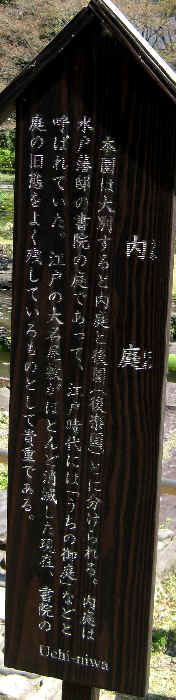 内庭
うちにわ
本園は大別すると内庭と後園(後楽園)とに分けられる。内庭は
水戸藩邸の書院の庭であって、江戸時代には「うちの御庭」などと
呼ばれていた。江戸の大名屋敷がほとんど消滅した現在、書院の
庭の旧態をよく残しているものとして貴重である。
Uchi-niwa